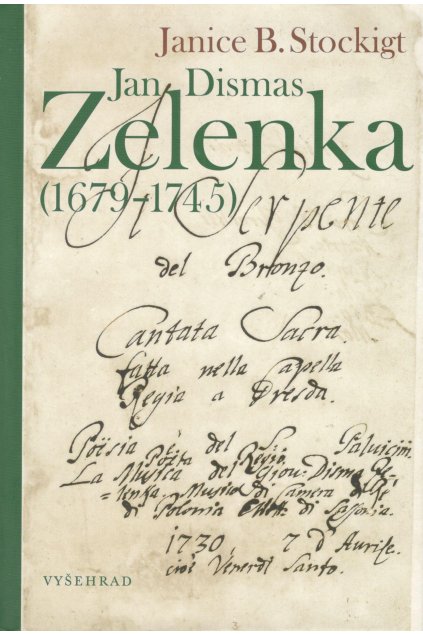 Janice B. Stockigt
Jan Dismas
Zelenka
(1679–1745)
Il Serpente
del Bronzo.
Cantata Sacra.
fatta nella Capella
Regia a Dresda.
Poësia è del S.
Poëta Regio.
La Musica del Giov: Disma Ze-
=lenka. Musico di Camera
di Polonia Elett: di Sassonia.
1730, 7 d'Aurile.
cioè Venerdi Santo.
VYŠEHRAD